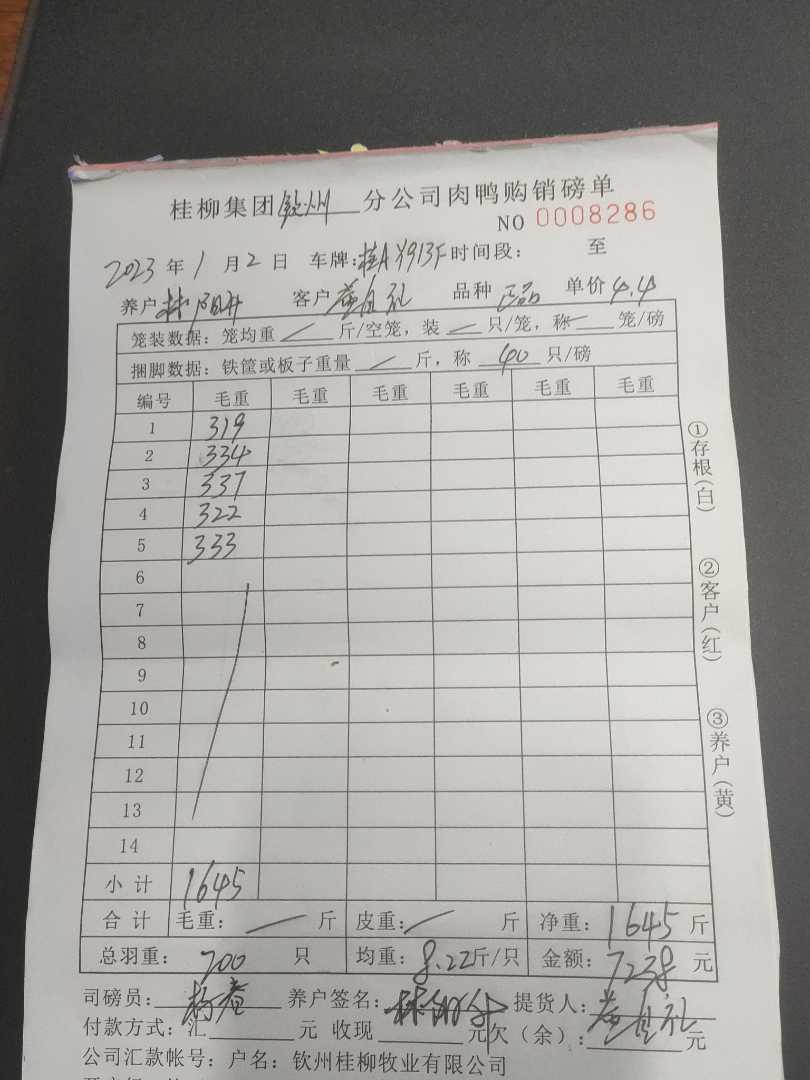 桂柳集团钦州分公司肉鸭购销磅单
NO 0008286
2023年1月2日 车牌:桂A 时间段: 至
养户 客户 品种 正品 单价 4.4
笼装数据: 笼均重 斤/空笼, 装 只/笼, 称 笼/磅
捆脚数据: 铁筐或板子重量 斤, 称 40 只/磅
编号 毛重 毛重 毛重 毛重 毛重 毛重
1 319
2 334
3 337
4 322
5 333
6
7
8
9
10
11
12
13
14
小计 1645
合计 毛重: 斤 皮重: 斤 净重: 1645 斤
总羽重: 200 只 均重: 8.22斤/只 金额: 7238 元
司磅员: 养户签名: 提货人:
付款方式: 汇 元 收现 元欠(余): 元
公司汇款帐号: 户名: 钦州桂柳牧业有限公司
①存根(白)
②客户(红)
③养户(黄)